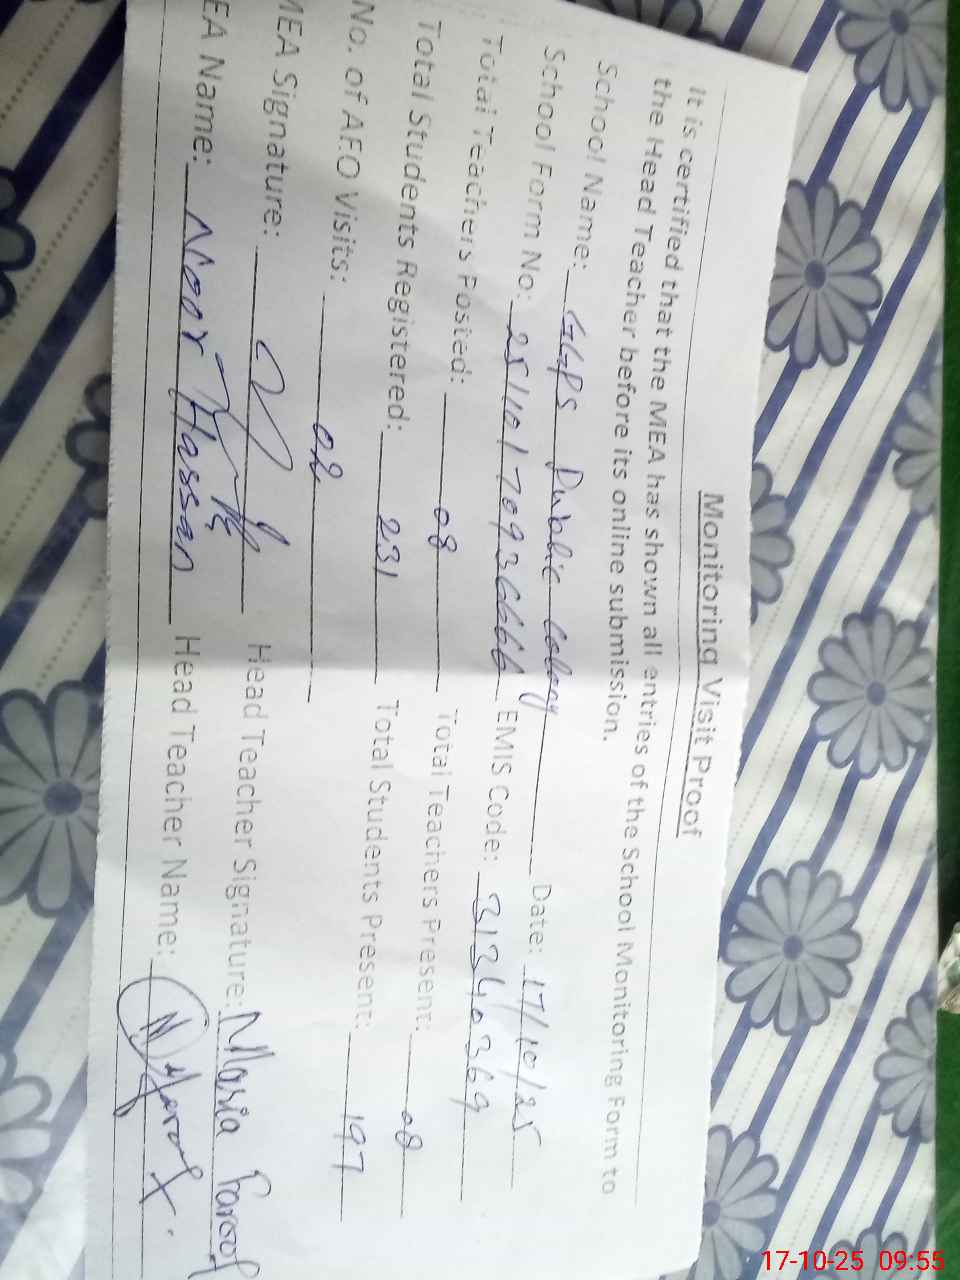 Monitoring Visit Proof
It is certified that the MEA has shown all entries of the School Monitoring Form to
the Head Teacher before its online submission.
School Name: GGPS Public Colony Date: 17/10/25
School Form No: 251101709366666 EMIS Code: 31240369
Total Teachers Posted: 08 Total Teachers Present: 08
Total Students Registered: 231 Total Students Present: 197
No. of AEO Visits: 02
MEA Signature: Head Teacher Signature: Maria Farooq
EA Name: Noor Hassan Head Teacher Name:
17-10-25 09:55